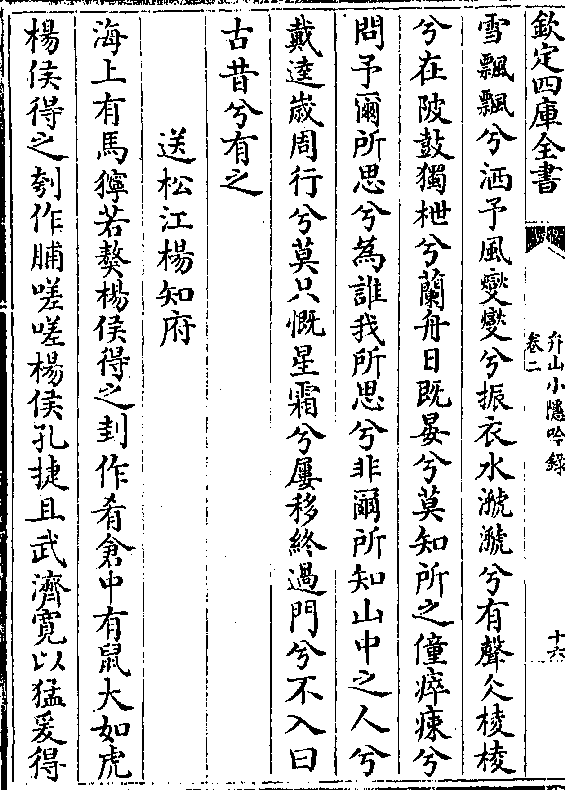 欽定四庫全書
弁山小隱吟錄
卷二
十六
雪飄飄兮洒予風㸑㸑兮振衣水㶁㶁兮有聲仌棱棱
兮在陂鼓獨枻兮蘭舟日既晏兮莫知所之僮瘁痡兮
問予爾所思兮為誰我所思兮非爾所知山中之人兮
戴逵歲周行兮莫只慨星霜兮屢移終過門兮不入曰
古昔兮有之
送松江楊知府
海上有馬獰若獒楊侯得之刲作肴倉中有鼠大如虎
楊侯得之刳作脯嗟嗟楊侯孔捷且武濟寛以猛爰得